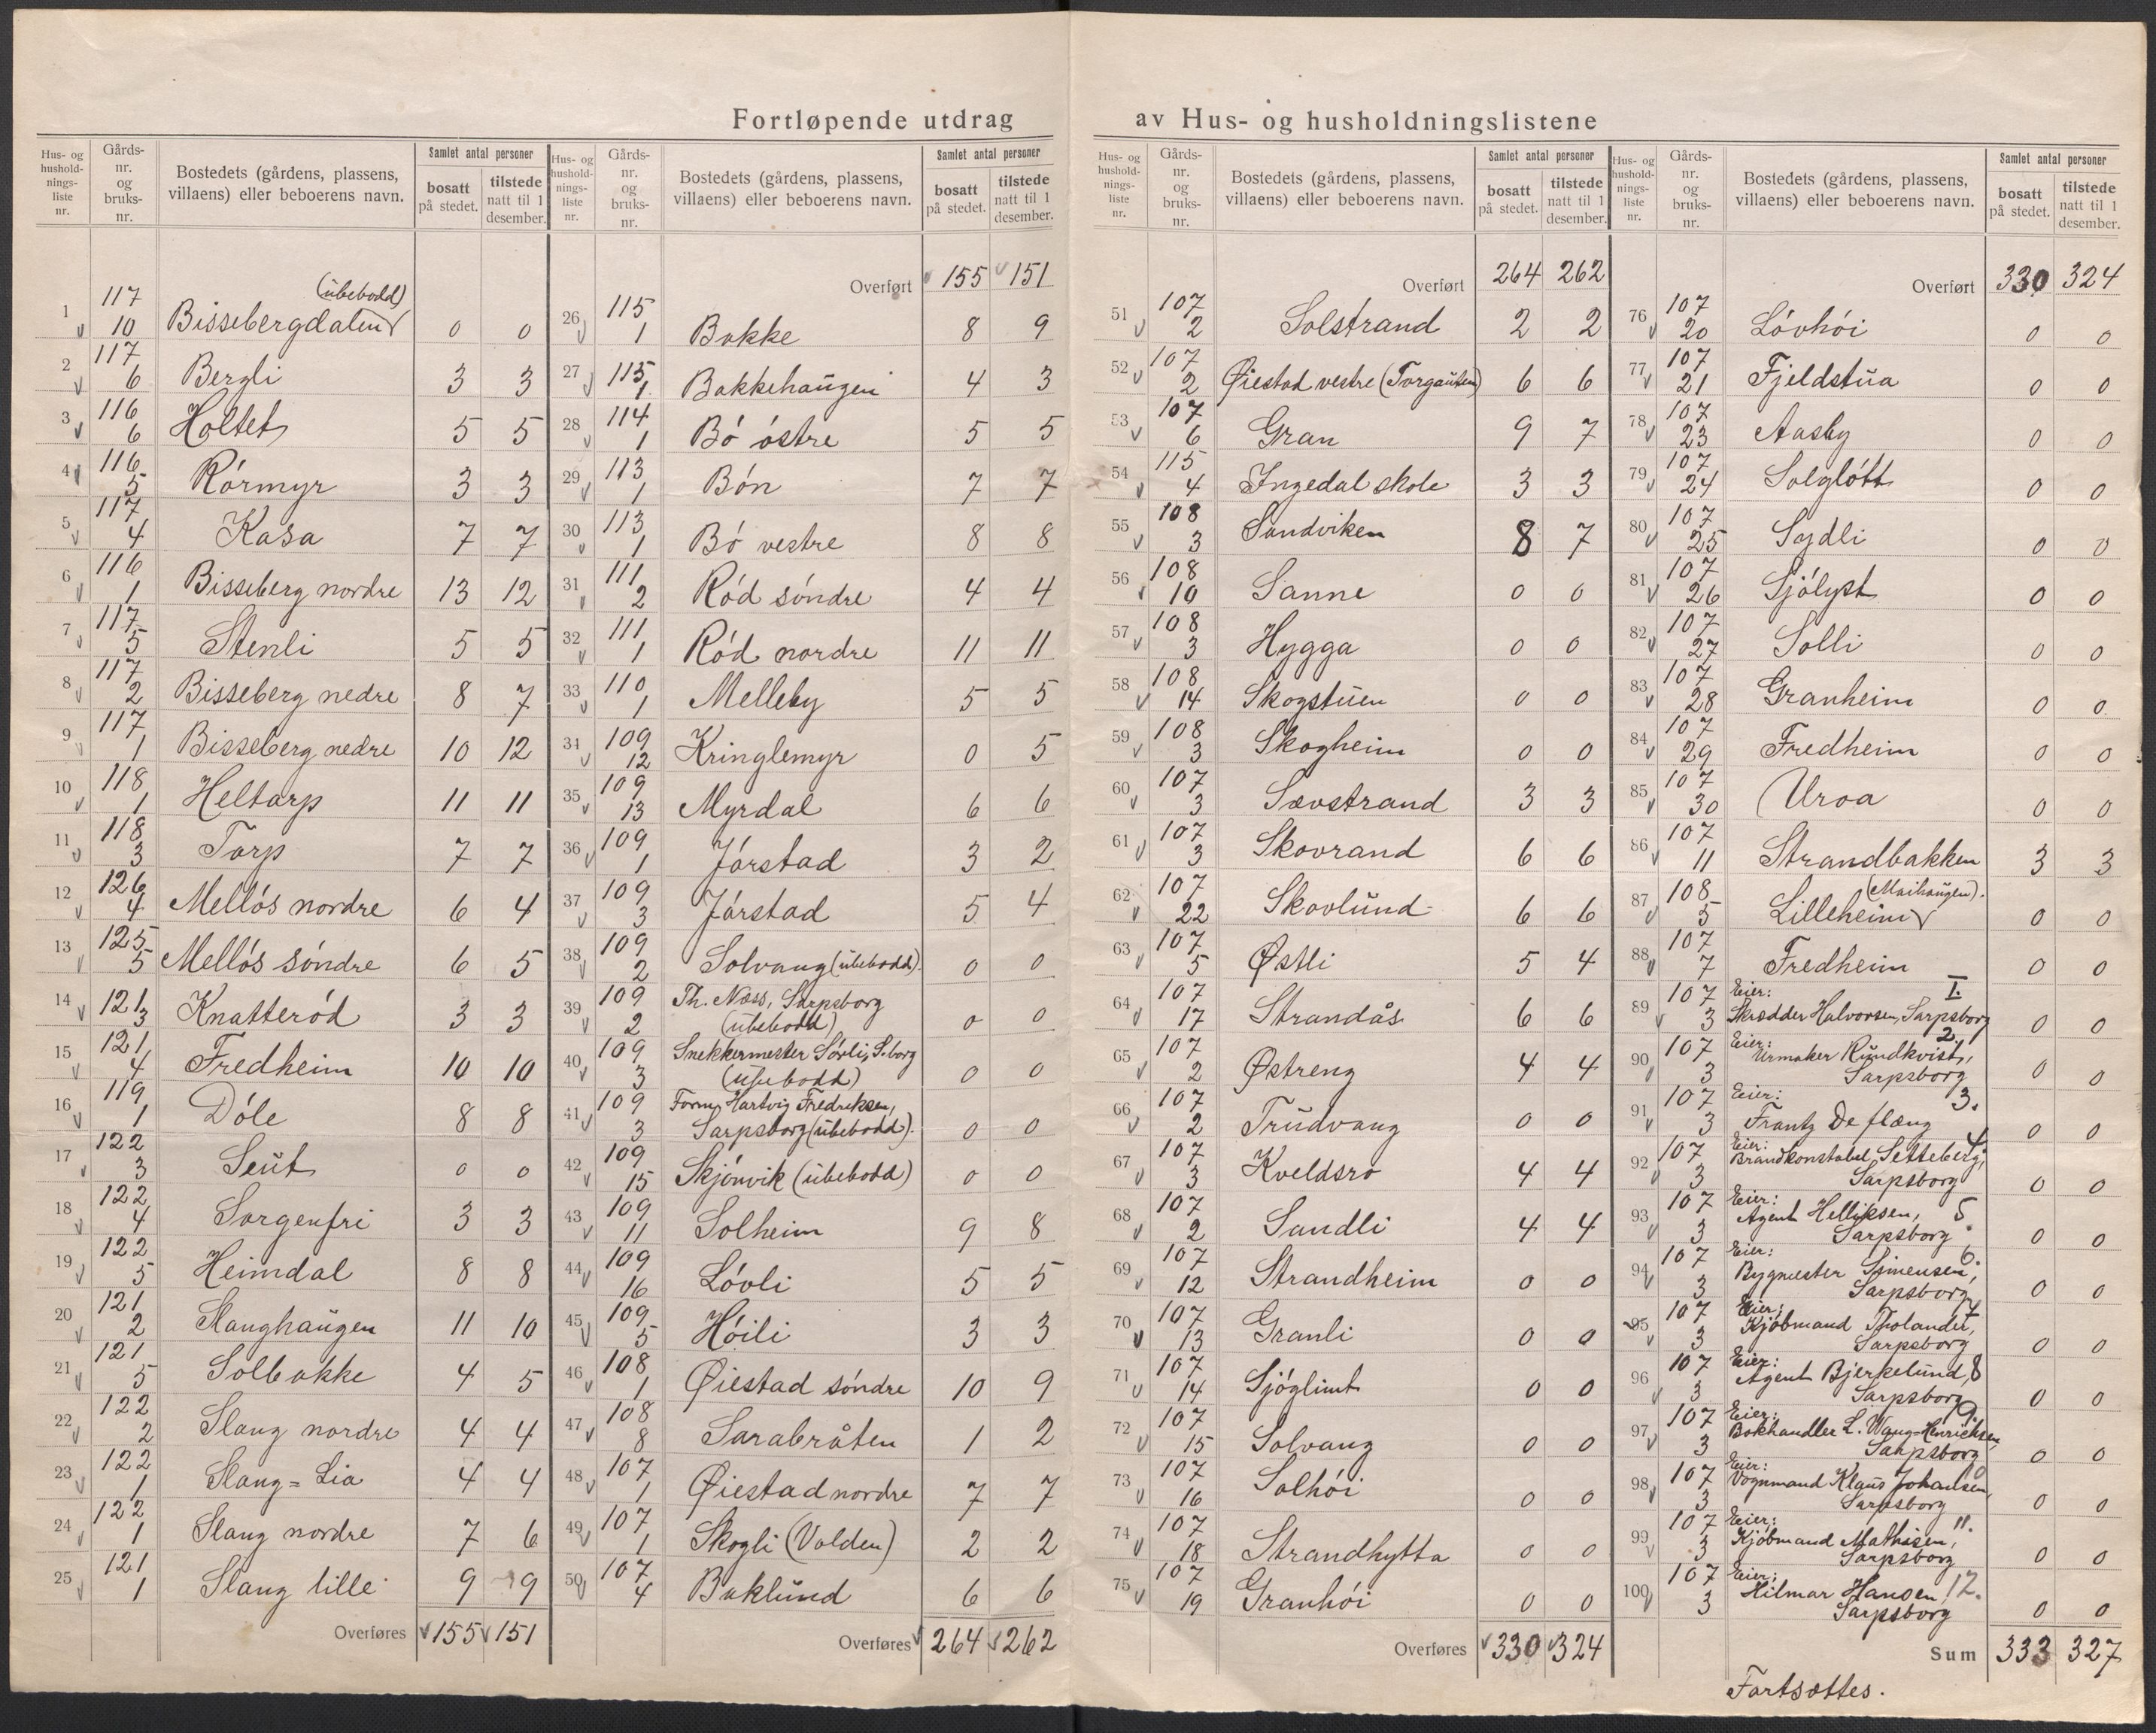 Fortløpende utdrag av Hus- og husholdningslistene
Hus- og hushold-nings-liste nr. Gårds-nr. og bruks-nr. Bostedets (gårdens, plassens, villaens) eller beboerens navn. Samlet antal personer bosatt på stedet. tilstede natt til 1 desember.
1 117 10 Bissebergdalen (ubebodd) 0 0
2 117 6 Bergli 3 3
3 116 6 Holtet 5 5
4 116 5 Rórmyr 3 3
5 117 4 Kasa 7 7
6 116 1 Bisseberg nordre 13 12
7 117 5 Stenli 5 5
8 117 2 Bisseberg nedre 8 7
9 117 1 Bisseberg nedre 10 12
10 118 1 Heltarp 11 11
11 118 3 Torp 7 7
12 126 4 Mellós nordre 6 4
13 125 5 Mellós sóndre 6 5
14 121 3 Knatteród 3 3
15 121 4 Fredheim 10 10
16 119 1 Dóle 8 8
17 122 3 Seut 0 0
18 122 4 Sorgenfri 3 3
19 122 5 Heimdal 8 8
20 121 2 Slanghaugen 11 10
21 121 5 Solbakke 4 5
22 122 2 Slang nordre 4 4
23 122 1 Slang=Lia 4 4
24 122 1 Slang nordre 7 6
25 121 1 Slang lille 9 9
Overføres 155 151
Hus- og hushold-nings-liste nr. Gårds-nr. og bruks-nr. Bostedets (gårdens, plassens, villaens) eller beboerens navn. Samlet antal personer bosatt på stedet. tilstede natt til 1 desember.
Overført 155 151
26 115 1 Bakke 8 9
27 115 1 Bakkehaugen 4 3
28 114 1 Bó óstre 5 5
29 113 1 Bón 7 7
30 113 1 Bó vestre 8 8
31 111 2 Ród sóndre 4 4
32 111 1 Ród nordre 11 11
33 110 1 Melleby 5 5
34 109 12 Kringlemyr 0 5
35 109 13 Myrdal 6 6
36 109 1 Jórstad 3 2
37 109 3 Jórstad 5 4
38 109 2 Solvang (ubebodd). 0 0
39 109 2 Th. Næss, Sarpsborg
(ubebodd) 0 0
40 109 3 Snekkermester Sórli, S.borg
(ubebodd) 0 0
41 109 3 Form. Hartvig Fredriksen,
Sarpsborg (ubebodd). 0 0
42 109 15 Skjónvik (ubebodd) 0 0
43 109 11 Solheim 9 8
44 109 16 Lóvli 5 5
45 109 5 Hóili 3 3
46 108 1 Øiestad sóndre 10 9
47 108 8 Sarabråten 1 2
48 107 1 Øiestad nordre 7 7
49 107 1 Skogli (Volden) 2 2
50 107 4 Baklund 6 6
Overføres 264 262
Hus- og hushold-nings-liste nr. Gårds-nr. og bruks-nr. Bostedets (gårdens, plassens, villaens) eller beboerens navn. Samlet antal personer bosatt på stedet. tilstede natt til 1 desember.
Overført 264 262
51 107 2 Solstrand 2 2
52 107 2 Øiestad vestre (Torgauten) 6 6
53 107 6 Gran 9 7
54 115 4 Ingedal skole 3 3
55 108 3 Sandviken 8 7
56 108 10 Sanne 0 0
57 108 3 Hygga 0 0
58 108 14 Skogstuen 0 0
59 108 3 Skogheim 0 0
60 107 3 Sævstrand 3 3
61 107 3 Skovrand 6 6
62 107 22 Skovlund 6 6
63 107 5 Østli 5 4
64 107 17 Strandås 6 6
65 107 2 Østreng 4 4
66 107 2 Trudvang 0 0
67 107 3 Kveldsro 4 4
68 107 2 Sandli 4 4
69 107 12 Strandheim 0 0
70 107 13 Granli 0 0
71 107 14 Sjóglimt 0 0
72 107 15 Solvang 0 0
73 107 16 Solhói 0 0
74 107 18 Strandhytta 0 0
75 107 19 Granhói 0 0
Overføres 330 324
Hus- og hushold-nings-liste nr. Gårds-nr. og bruks-nr. Bostedets (gårdens, plassens, villaens) eller beboerens navn. Samlet antal personer bosatt på stedet. tilstede natt til 1 desember.
Overført 330 324
76 107 20 Lóvhói 0 0
77 107 21 Fjeldstua 0 0
78 107 23 Aasby 0 0
79 107 24 Solglótt 0 0
80 107 25 Sydli 0 0
81 107 26 Sjólyst 0 0
82 107 27 Solli 0 0
83 107 28 Granheim 0 0
84 107 29 Fredheim 0 0
85 107 30 Uroa 0 0
86 107 11 Strandbakken 3 3
87 108 5 Lilleheim (Maihaugen). 0 0
88 107 7 Fredheim 0 0
89 107 3 Eier: I.
Skrædder Halvorsen, Sarpsborg 0 0
90 107 3 Eier: 2.
Urmaker Rundkvist,
Sarpsborg 0 0
91 107 3 Eier: 3.
Frantz De flæng 0 0
92 107 3 Eier: 4
Brandkonstabel Setteberg,
Sarpsborg 0 0
93 107 3 Eier: 5.
Agent Helliksen,
Sarpsborg 0 0
94 107 3 Eier: 6.
Bygmester Simensen,
Sarpsborg 0 0
95 107 3 Eier: 7
Kjóbmand Tholander,
Sarpsborg 0 0
96 107 3 Eier:
Agent Bjerkelund, 8
Sarpsborg 0 0
97 107 3 Eier: 9.
Bokhandler L. Wang-Henrichsen,
Sarpsborg 0 0
98 107 3 Eier: 10
Vognmand Klaus Johansen,
Sarpsborg 0 0
99 107 3 Eier: 11.
Kjóbmand Mathisen,
Sarpsborg 0 0
100 107 3 Eier:
Hilmar Hansen 12.
Sarpsborg 0 0
Sum 333 327
Fortsættes.